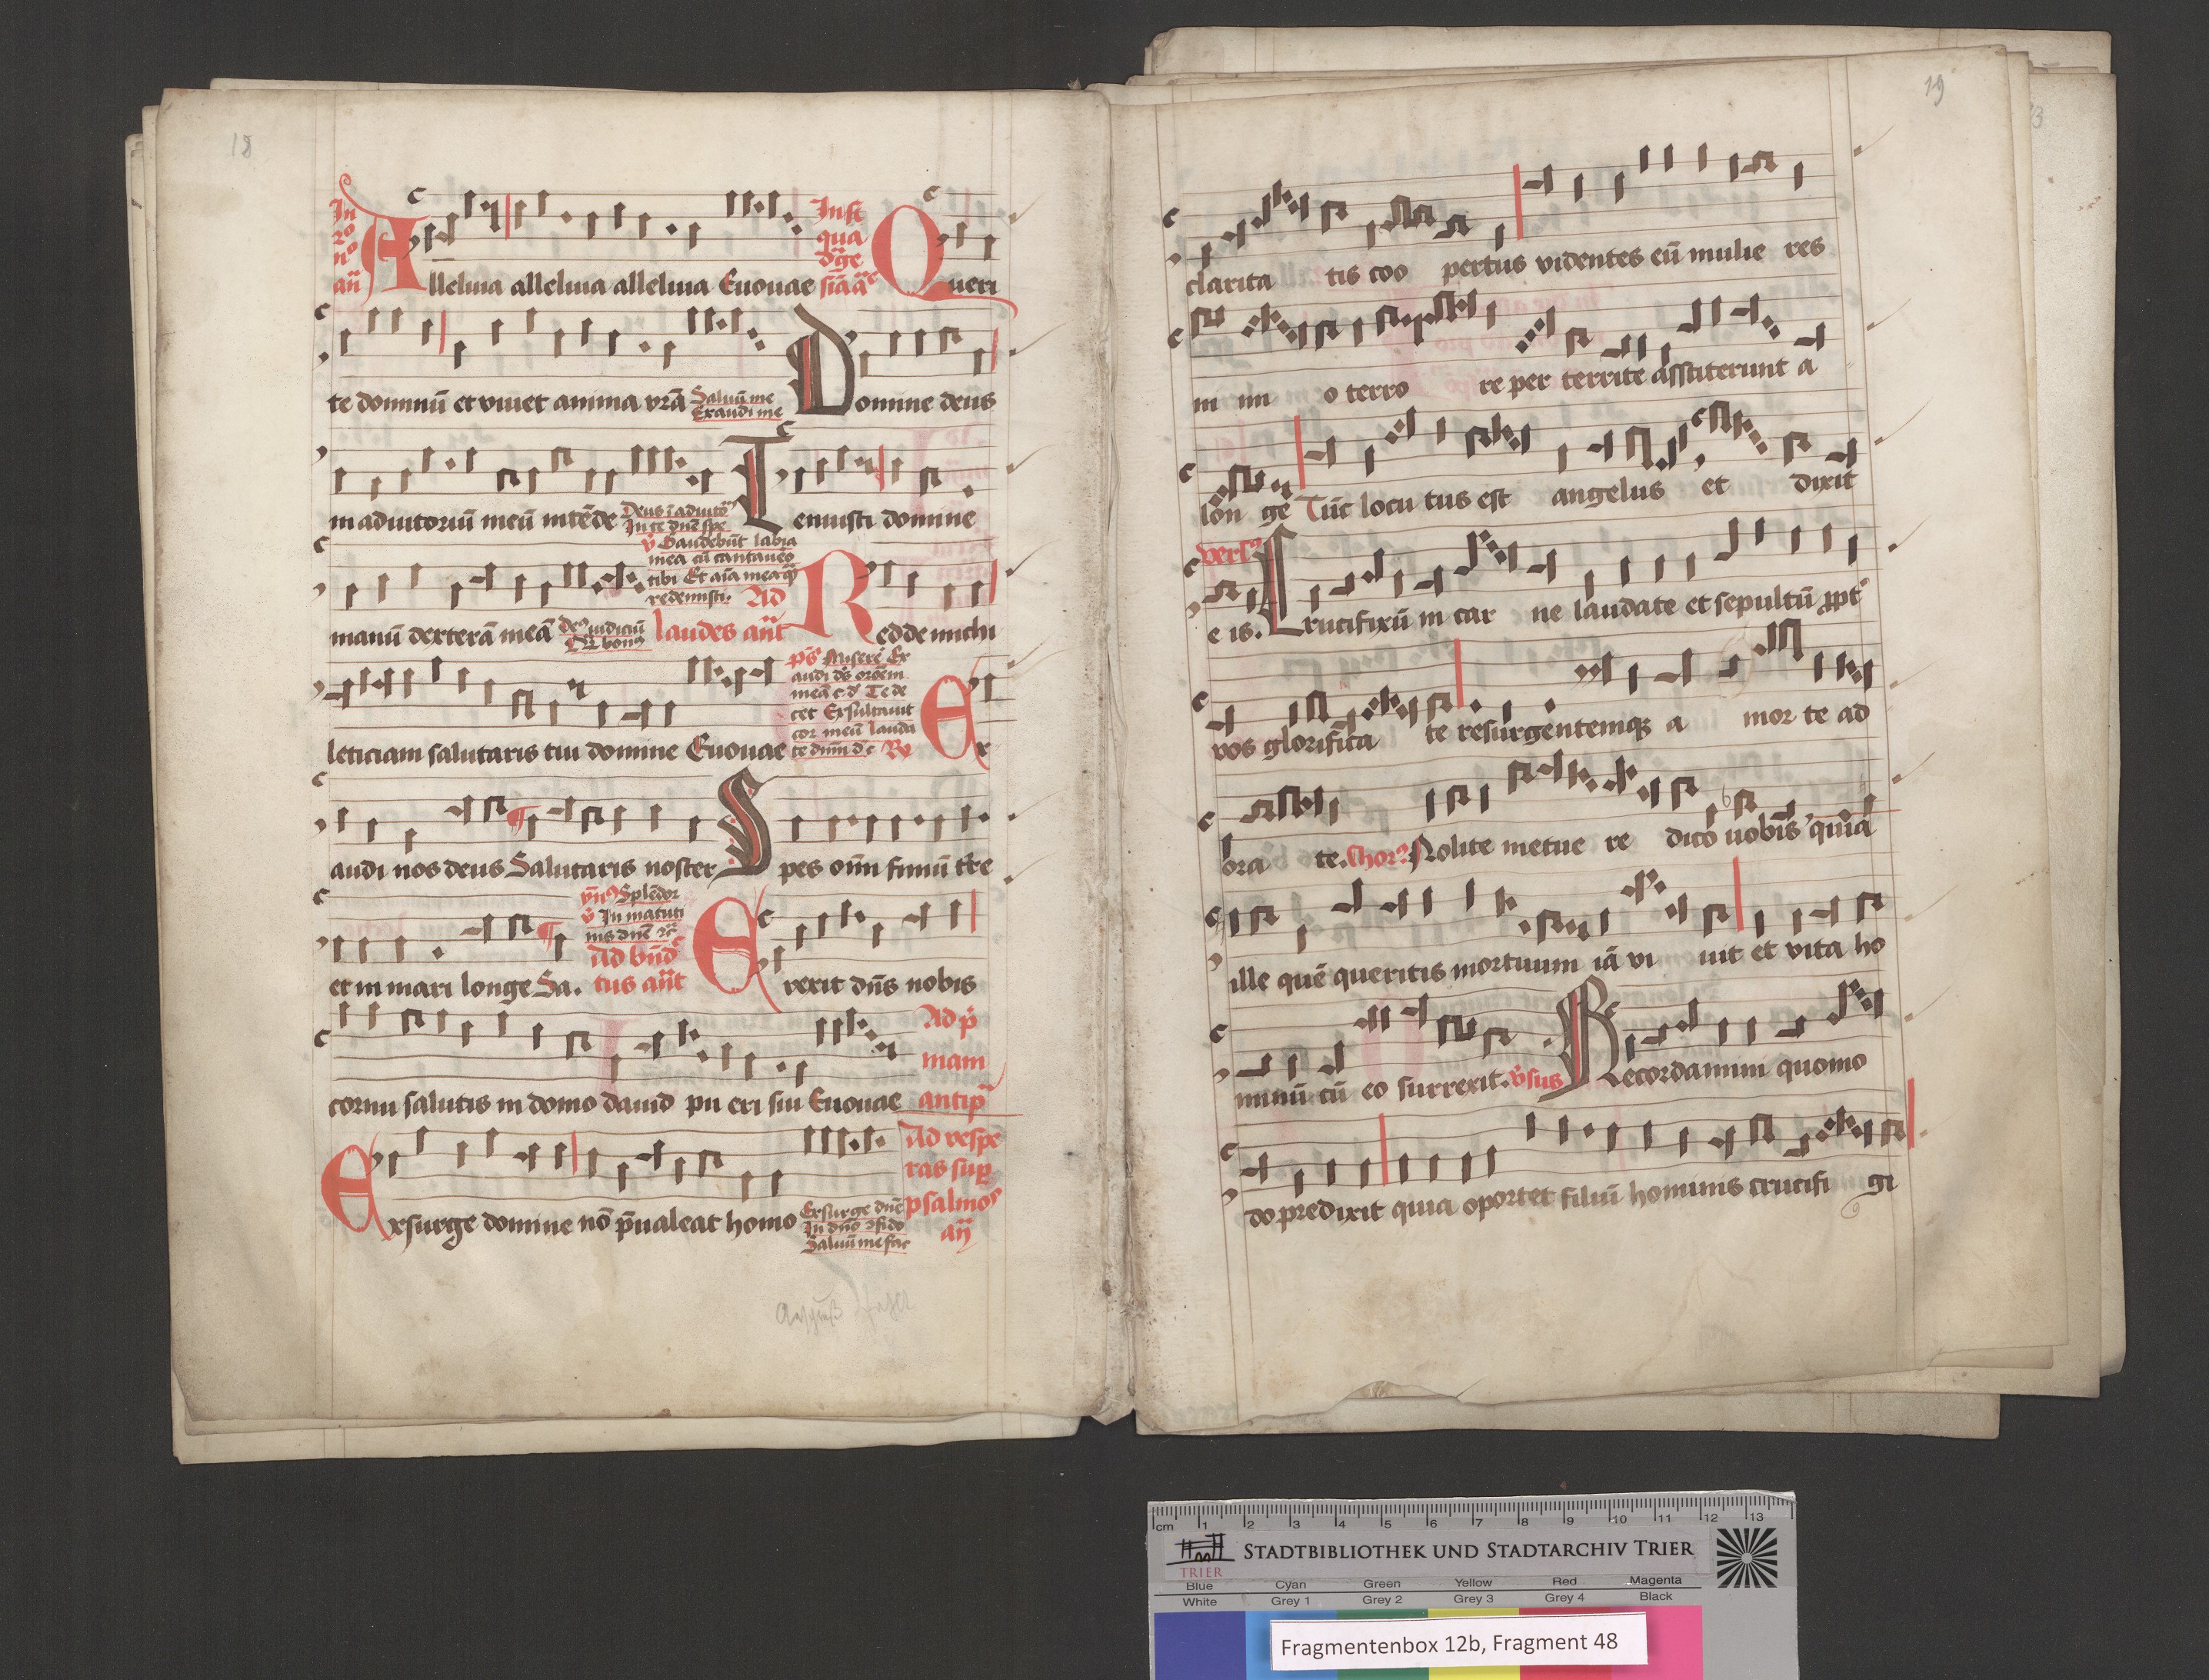 18
In
añ
Alleluia alleluia alleluia Euouae
In st
qua
dge
Queri
te dominū et viuet anima vrā
Saluū me
Exaudi me
Domine deus
in adiutoriū meū intēde
Deus ī adiuto
In te dnē spe
Tenuisti domine
v̇ Gaudebūt labia
mea cū cantauero
tibi Et aīa mea
redemisti.
manū dexterā meā
Ad
laudes añt
Redde michi
leticiam salutaris tui domine Euouae
ps Misere Ex
audi ds orōem
meā Te de
cet Exultauit
cor meū lauda
te dnm d c
Ex
audi nos deus Salutaris noster Spes oīm finiū tre
et in mari longe Sa.
Splēdor
v̇ In matuti
nis dnē
Ad bñd
tus añt
Erexit dñs nobis
cornu salutis in domo dauid pu eri sui Euouae
Ad p
mam
antip
Exsurge domine nō p̄ualeat homo
Exsurge dnē
In dno cfido
Saluū me fac
Ad vespe
ras sup
psalmos
añ
19
clarita tis coo pertus videntes eū mulie res
in im o terro re per territe assterunt a
lon ge Tūc locu tus est angelus et dixit
vers
e is. Crucifixū in car ne laudate et sepultū ppt
vos glorifica te resurgentemqz a mor te ad
ora te. Chor Nolite metue re dico uobis quia
ille quē queritis mortuum iā vi uit et vita ho
minū cū eo surrexit. v̇sus Recordamini quomo
do predixit quia oportet filiū hominis crucifi gi
cm 1 2 3 4 5 6 7 8 9 10 11 12 13
TRIER
Stadtbibliothek und Stadtarchiv Trier
Blue Cyan Green Yellow Red Magenta
White Grey 1 Grey 2 Grey 3 Grey 4 Black
Fragmentenbox 12b, Fragment 48